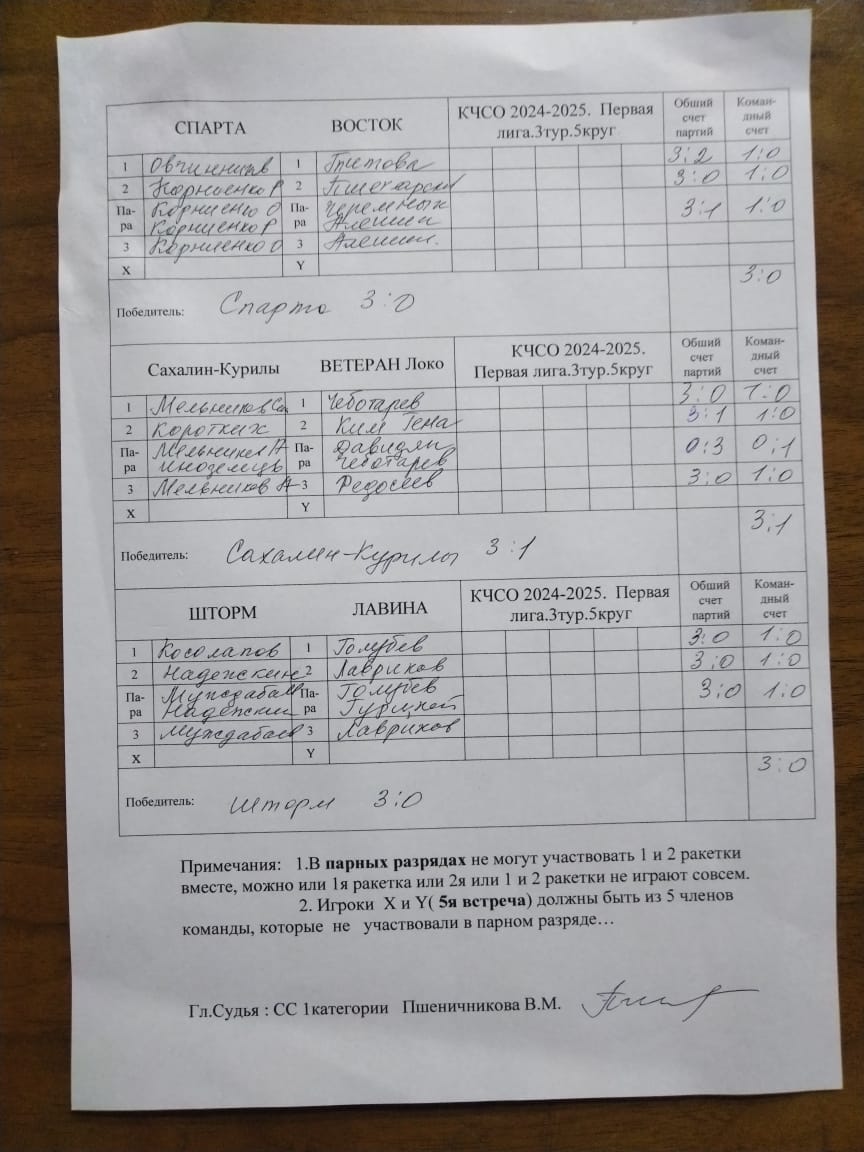 СПАРТА ВОСТОК КЧСО 2024-2025. Первая лига.3тур.5круг Общий счет партий Коман-дный счет
1 Овчинников 1 3:2 1:0
2 Корниенко Р 2 3:0 1:0
Па-ра Корниенко О Па-ра Черемных 3:1 1:0
Корниенко Р Алешин
3 Корниенко О 3 Алешин.
X Y
3:0
Победитель: Спарта 3:0
Сахалин-Курилы ВЕТЕРАН Локо КЧСО 2024-2025. Первая лига.3тур.5круг Общий счет партий Коман-дный счет
1 Мельников 1 Чеботарев 3:0 1:0
2 Коротких 2 Ким Гена 3:1 1:0
Па-ра Мельников А Па-ра Давидян 0:3 0:1
иноземць Чеботарев
3 Мельников А 3 Федосеев 3:0 1:0
X Y
3:1
Победитель: Сахалин-Курилы 3:1
ШТОРМ ЛАВИНА КЧСО 2024-2025. Первая лига.3тур.5круг Общий счет партий Коман-дный счет
1 Косолапов 1 Голубев 3:0 1:0
2 Надежкин 2 Лавриков 3:0 1:0
Па-ра Муждабаев Па-ра Голубев 3:0 1:0
Надежкин
3 Муждабаев 3 Лавриков
X Y
3:0
Победитель: Шторм 3:0
Примечания: 1.В парных разрядах не могут участвовать 1 и 2 ракетки
вместе, можно или 1я ракетка или 2я или 1 и 2 ракетки не играют совсем.
2. Игроки X и Y( 5я встреча) должны быть из 5 членов
команды, которые не участвовали в парном разряде…
Гл.Судья : СС 1категории Пшеничникова В.М.